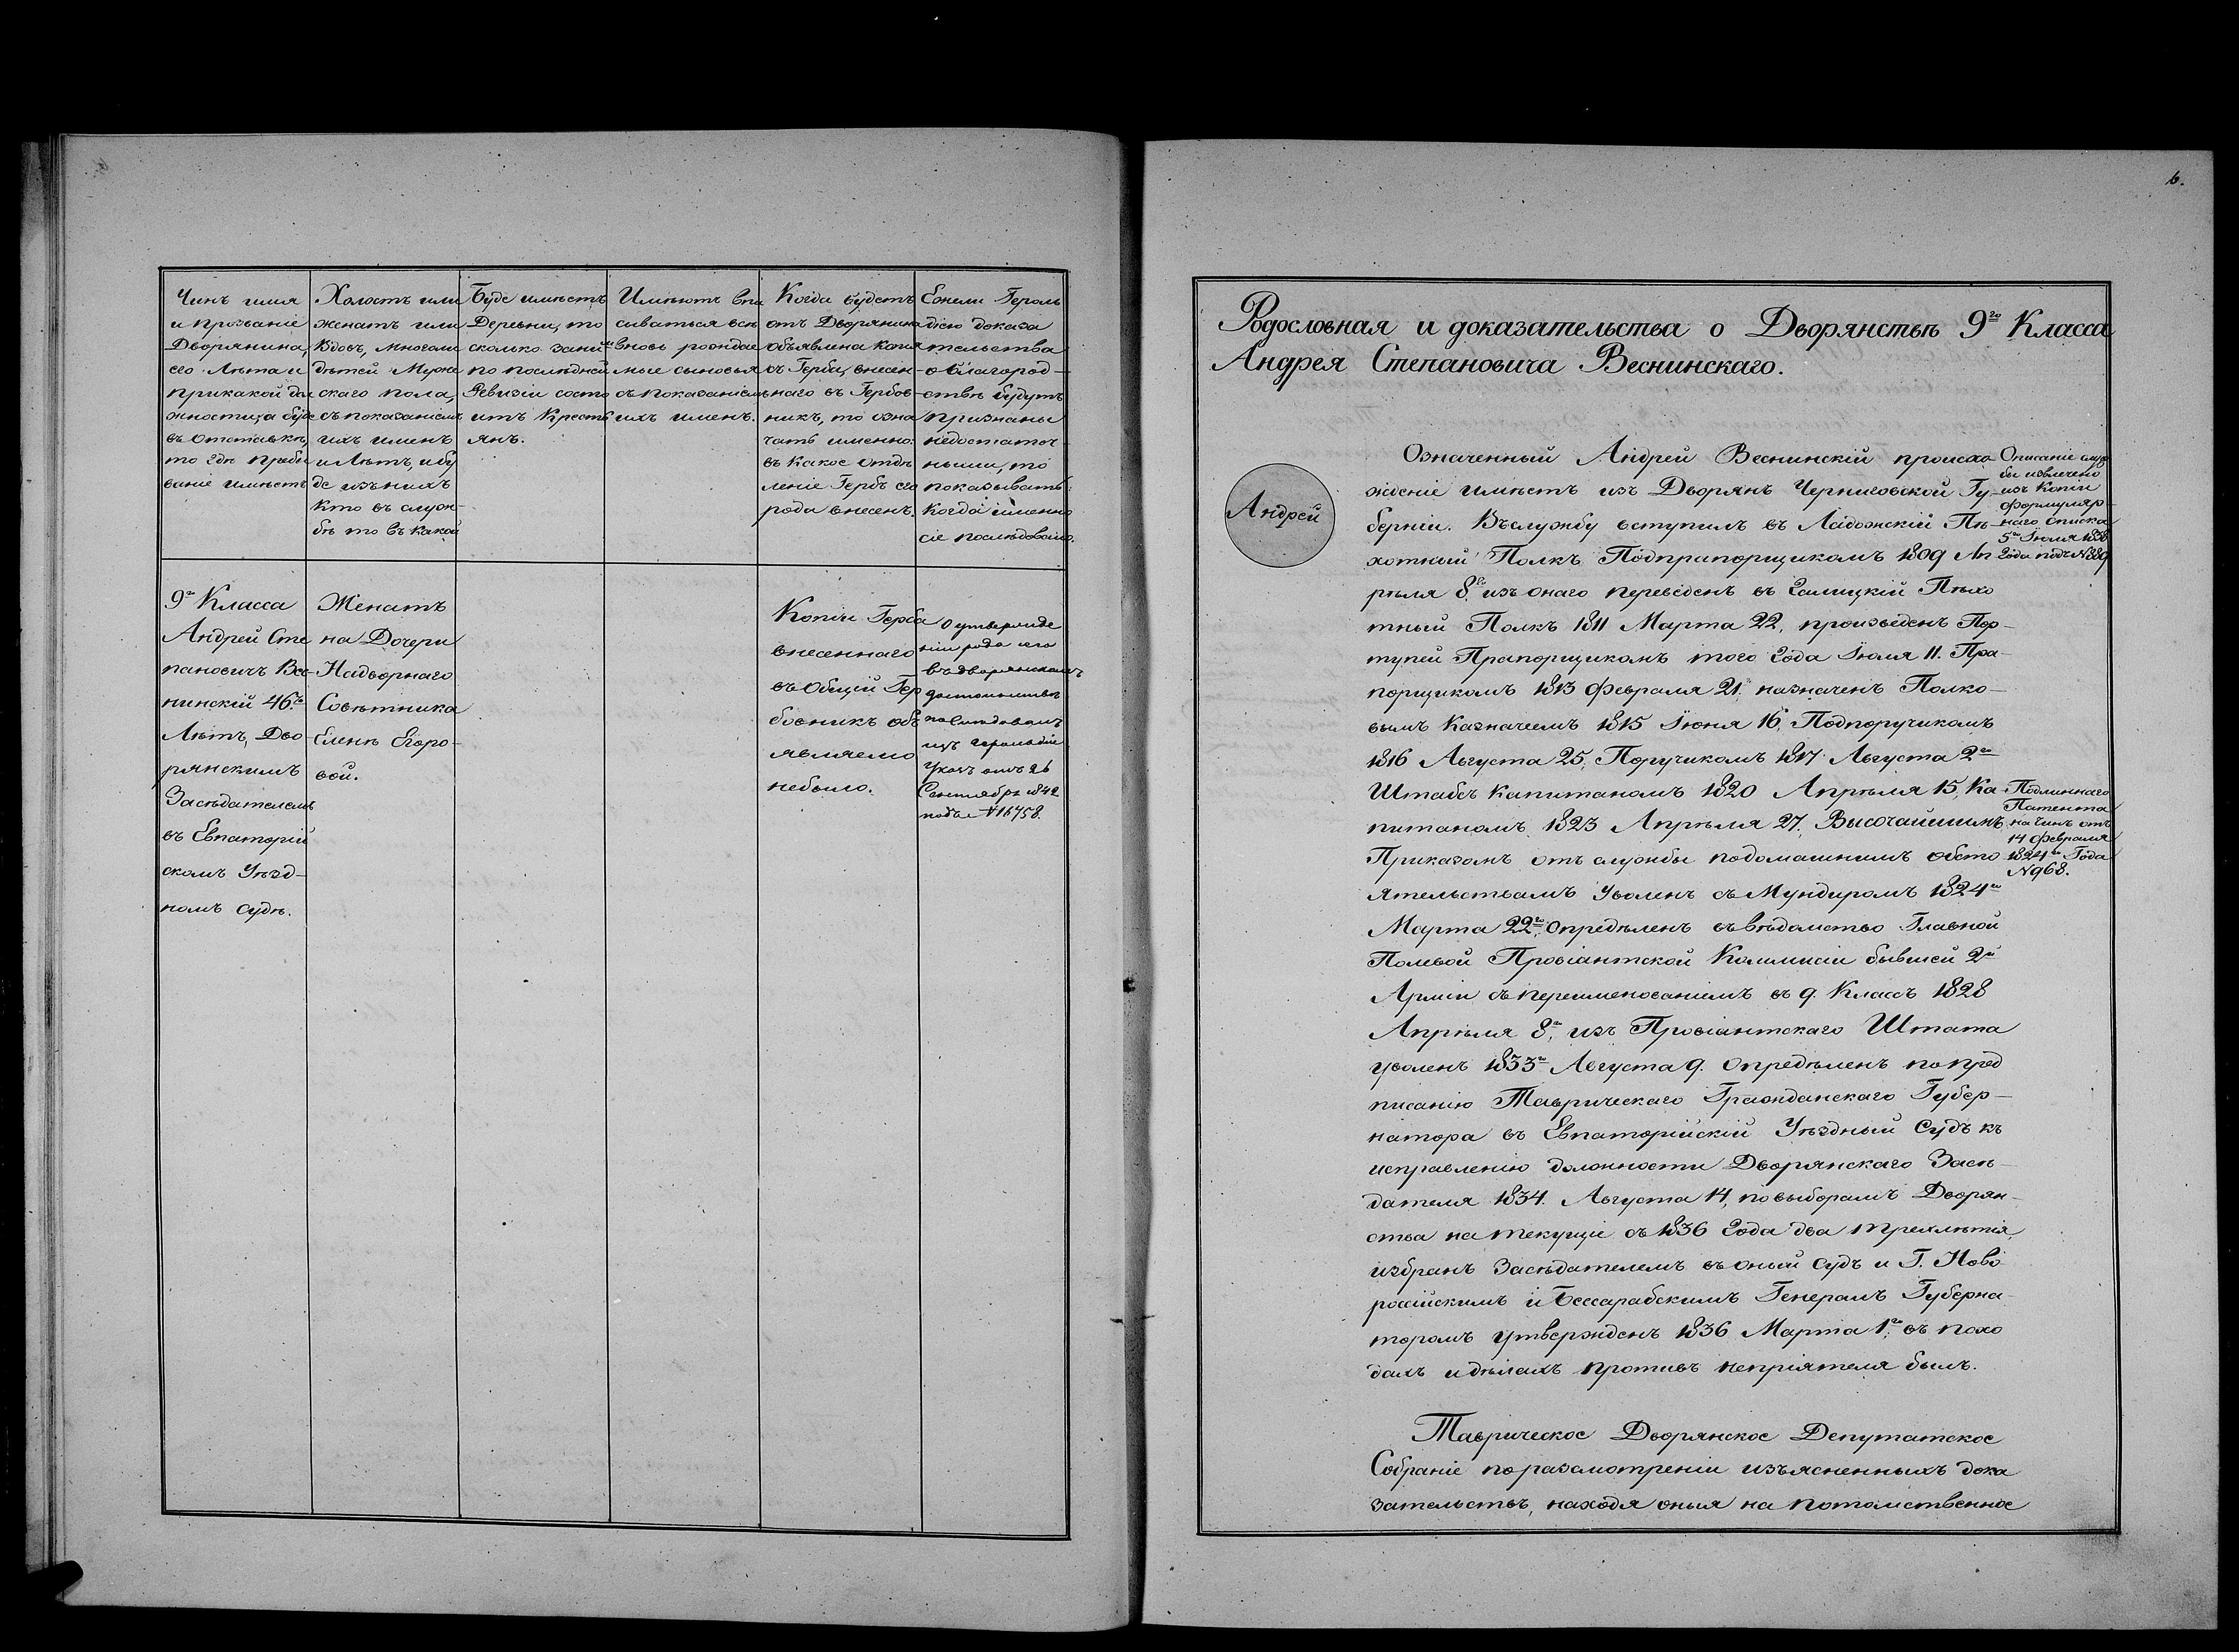 6.
Чинъ имя
и прозваніе
Дворянина,
его Лѣта и
прикакой дол
жности, а буде
въ Отставкѣ,
то гдѣ пребы
ваніе имѣетъ
Холостъ или
женатъ или
Вдовъ, многоли
дѣтей Муже
скаго пола,
съ показаніемъ
ихъ именъ
и Лѣтъ, и бу
де изъ нихъ
Кто въ служ-
бѣ то въ какой
Буде имѣетъ
Деревни, то
сколько за ним
по послѣдней
Ревизіи состо
итъ Кресть
янъ.
Имѣютъ впи
сываться всѣ
вновь рождае
мые сыновья
съ показаніемъ
ихъ именъ.
Когда будетъ
отъ Дворянина
объявлена копія
съ Герба, внесен-
наго въ Гербов-
никъ, то озна
чать именно:
въ какое отдѣ
леніе Гербъ его
рода внесенъ.
Ежели Героль
діею доказа
тельства
о благород-
ствѣ будутъ
признаны
недостаточ-
ными, то
показывать:
когда именно
сіе послѣдовало.
9го Класса
Андрей Сте
пановичъ Вес-
нинскій 46ть
Лѣтъ, Дво-
рянскимъ
Засѣдателемъ
въ Евпаторій
скомъ Уѣзд-
номъ судѣ.
Женатъ
на Дочери
Надворнаго
Совѣтника
Еленѣ Егоро-
вой.
Копіи Герба
внесеннаго
въ Общій Гер
бовникъ объ
являемо
небыло.
О утвержде
ніи рода его
въ дворянскомъ
достоинствѣ
послѣдовалъ
изъ герольдіи
Указъ отъ 26
Сентября 1842
подъ №16758.
Родословная и доказательства о Дворянствѣ 9го Класса
Андрея Степановича Веснинскаго.
Андрей
Означенный Андрей Веснинскій происхо
жденіе имѣетъ изъ Дворянъ Черниговской Гу-
берніи. Въслужбу вступилъ въ Ладожскій Пѣ-
хотный Полкъ Подпрапорщикомъ 1809 Ап
рѣля 8го изъ онаго переведенъ въ Галицкій Пѣхо
тный Полкъ 1811 Марта 22, произведенъ Пор-
тупей Прапорщикомъ того года Іюля 11. Пра-
порщикомъ 1813 Февраля 21, назначенъ Полко-
вымъ Казначеемъ 1815 Іюня 16, Подпоручикомъ
1816 Августа 25, Поручикомъ 1817 Августа 2го
Штабсъ Капитаномъ 1820 Апрѣля 15, Ка
питаномъ 1823 Апрѣля 27, Высочайшимъ
Приказомъ отъ службы подомашнимъ обсто
ятельствамъ Уволенъ съ Мундиромъ 1824го
Марта 22го, Опредѣленъ въ вѣдомство Главной
Полевой Провіантской Коммисіи бывшей 2й
Арміи съ переименованіемъ въ 9. Классъ 1828
Апрѣля 8го, изъ Провіантскаго Штата
уволенъ 1833го Августа 9. Опредѣленъ по пред
писанію Таврическаго Гражданскаго Губер-
натора въ Евпаторійскій Уѣздный Судъ къ
исправленію должности Дворянскаго Засѣ-
дателя 1834. Августа 14, по выборамъ Дворян-
ства на текущіе съ 1836 Года два трехлѣтія,
избранъ Засѣдателемъ въ оный судъ и Г. Ново
россійскимъ и Бессарабскимъ Генералъ Губерна-
торомъ утвержденъ 1836 Марта 1го, въ похо
дахъ и дѣлахъ противъ непріятеля былъ.
Описаніе служ
бы извлечено
изъ Копіи
формуляр-
наго списка
5го Іюля 1838
Года подъ №389
Подлиннаго
Патента
на чинъ отъ
14 Февраля
1824го Года
№968.
Таврическое Дворянское Депутатское
Собраніе поразсмотреніи изъясненныхъ дока
зательствъ, находя оныя на потомственное